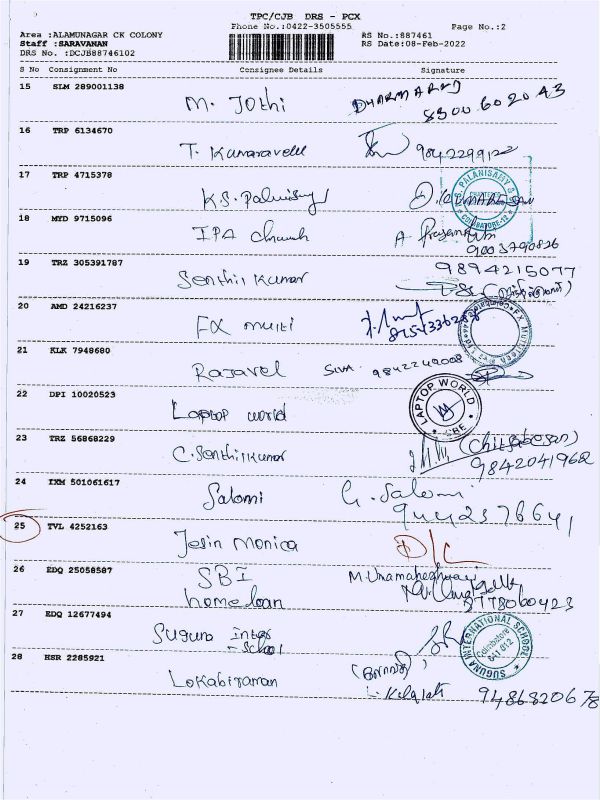 TPC/CJB DRS - PCX
Phone No.:0422-3505555
Page No.:2
Area :ALAMUNAGAR CK COLONY
RS No.:887461
Staff :SARAVANAN
RS Date:08-Feb-2022
DRS No. :DCJB88746102
S No Consignment No Consignee Details Signature
15 SLM 289001138
M. Jothi DHARMARAJ
8300602043
16 TRP 6134670
T. Kumaravelu 9842299122
17 TRP 4715378
K.S. Palanisamy
PALANISAMY &
COIMBATORE-12
18 MYD 9715096
IPA Church A
9003790826
19 TRZ 305391787
Senthil Kumar 9894215077
20 AMD 24216237
FX multi
21 KLK 7948680
Rajavel SIVA 9842249008
22 DPI 10020523
Laptop world
LAPTOP WORLD
CBE
23 TRZ 56868229
C. Senthilkumar
9842041962
24 IXM 501061617
Salomi G. Salomi
25 TVL 4252163
Jesin Monica D/C
26 EDQ 25058587
SBI M. Umamaheshwari
home loan 8778060423
27 EDQ 12677494
Suguna Inter
- School
SUGUNA INTERNATIONAL SCHOOL
Coimbatore
641 012
28 HSR 2285921
Lokabiraman
9486820678